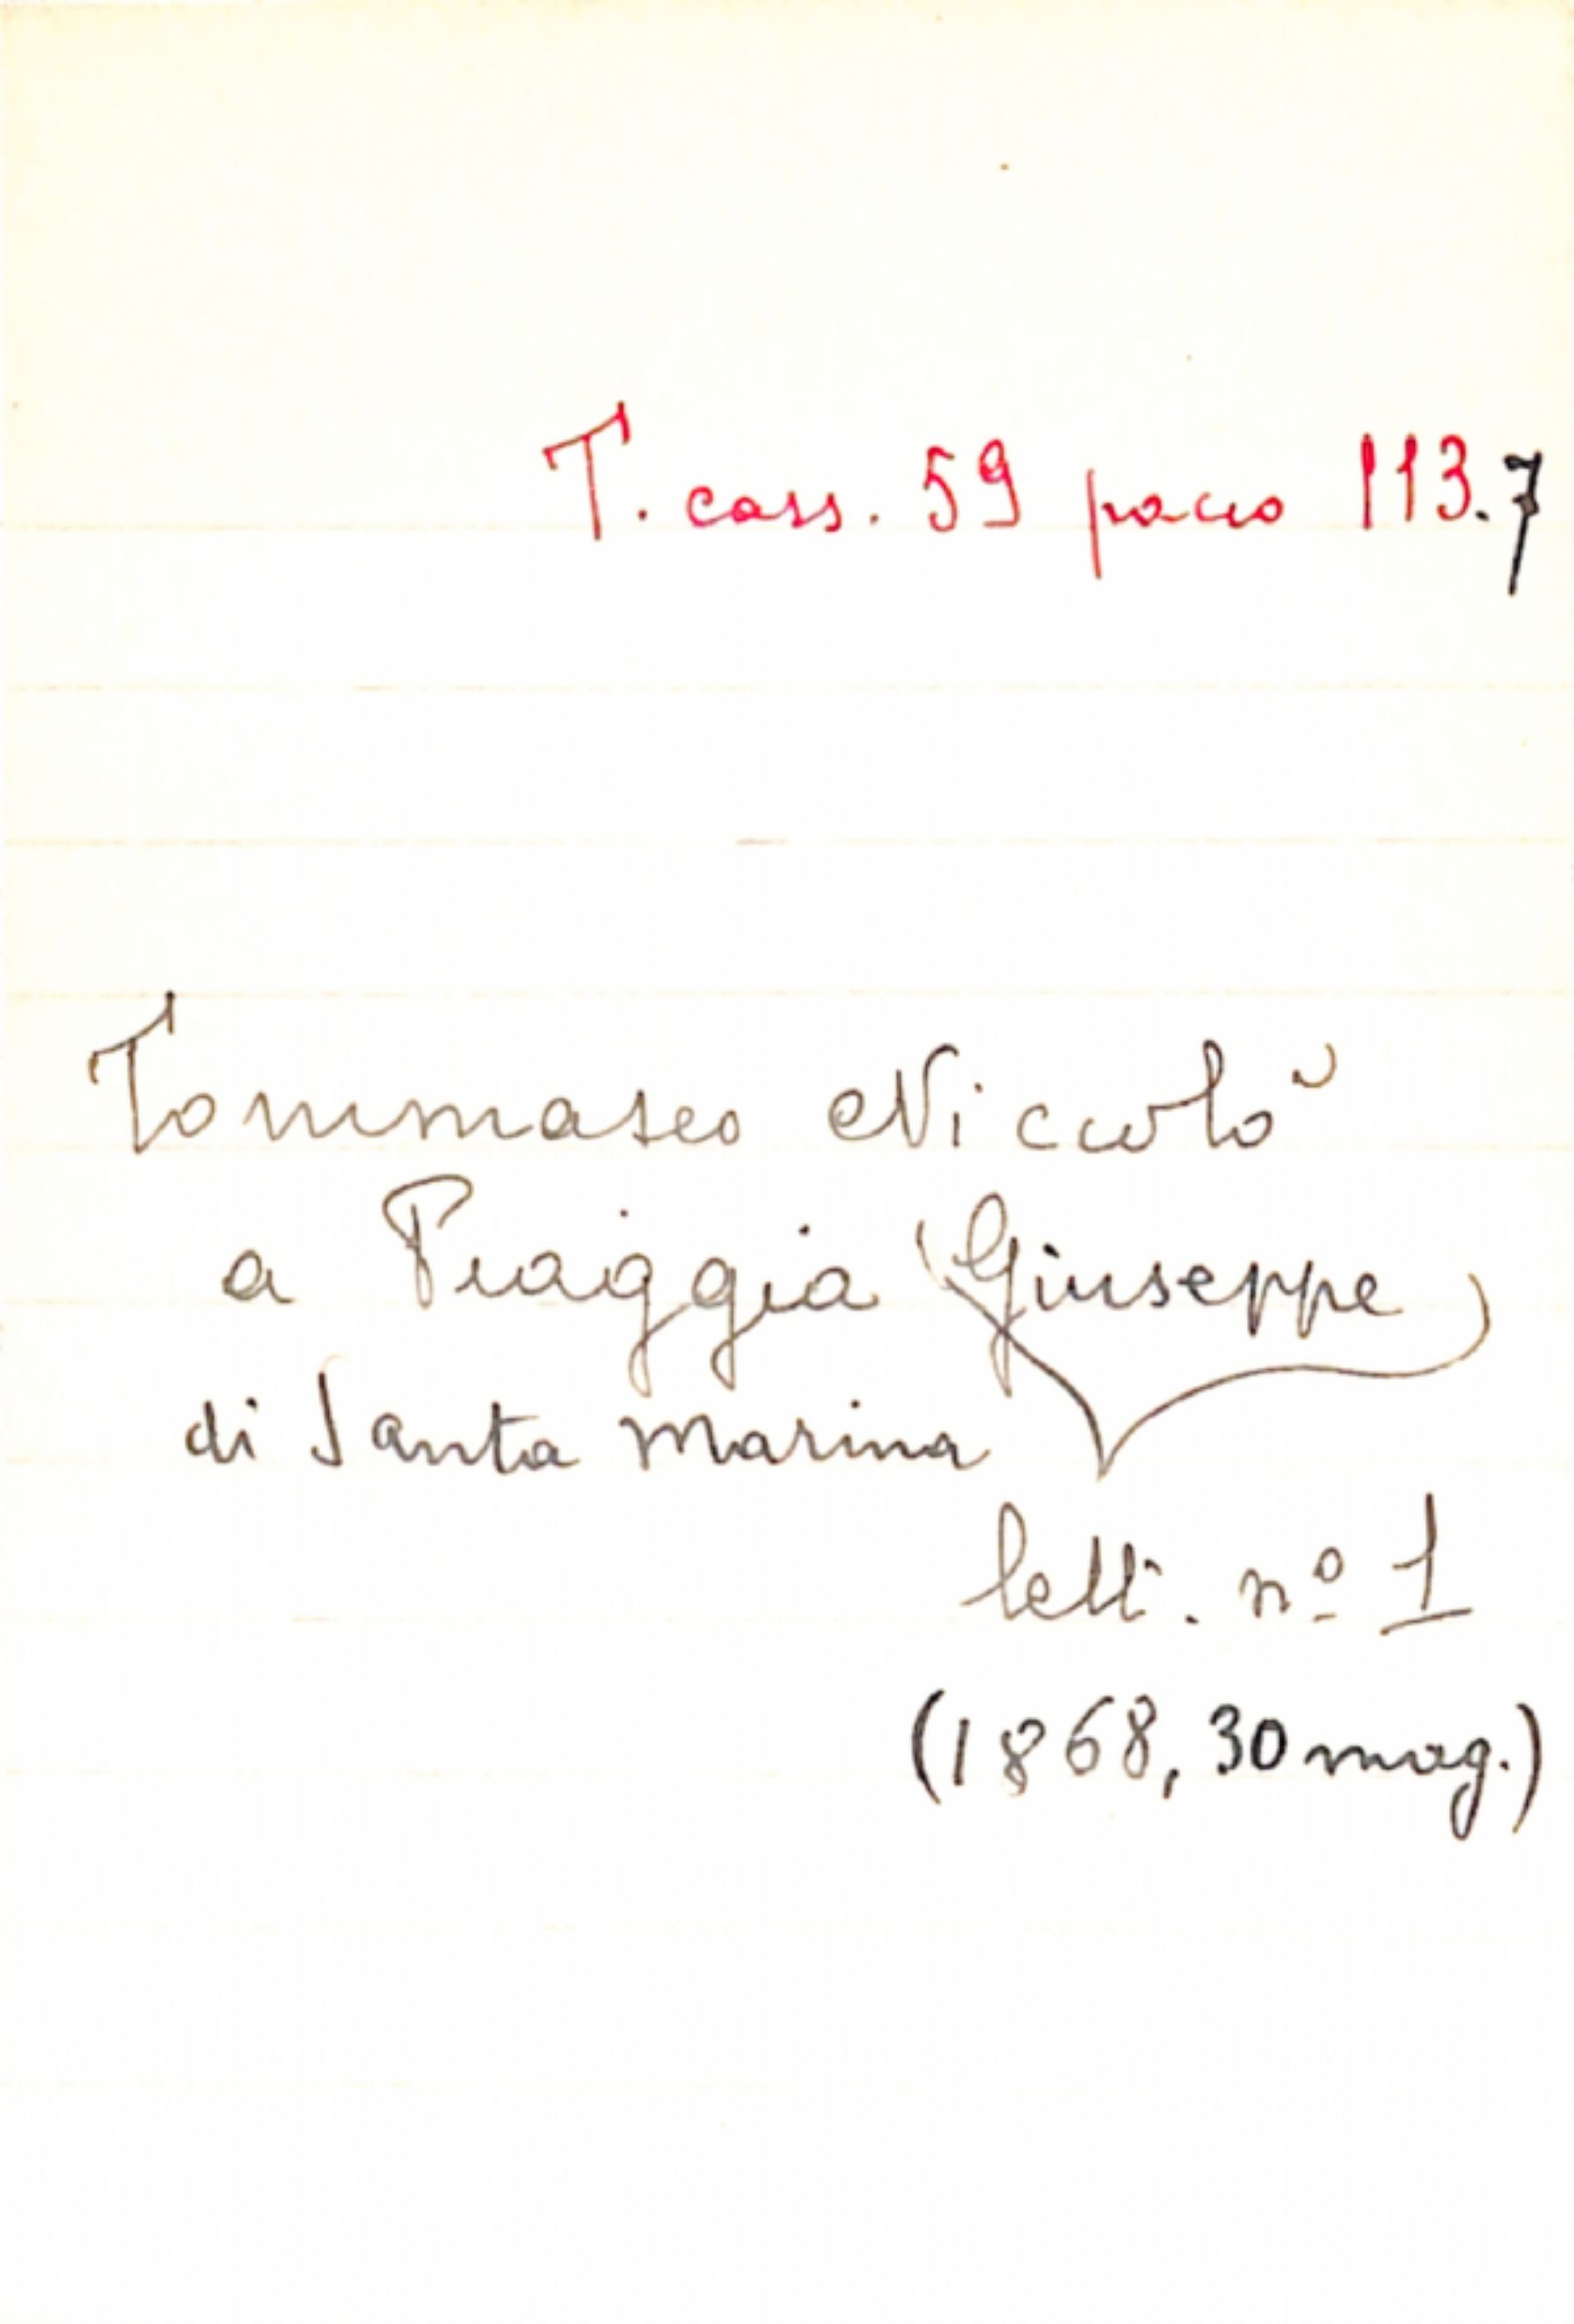 T. cass. 59 pacco 113.7
Tommaseo Niccolò
a Piaggia (Giuseppe)
di Santa Marina
lett. nº 1
(1868, 30 mag.)